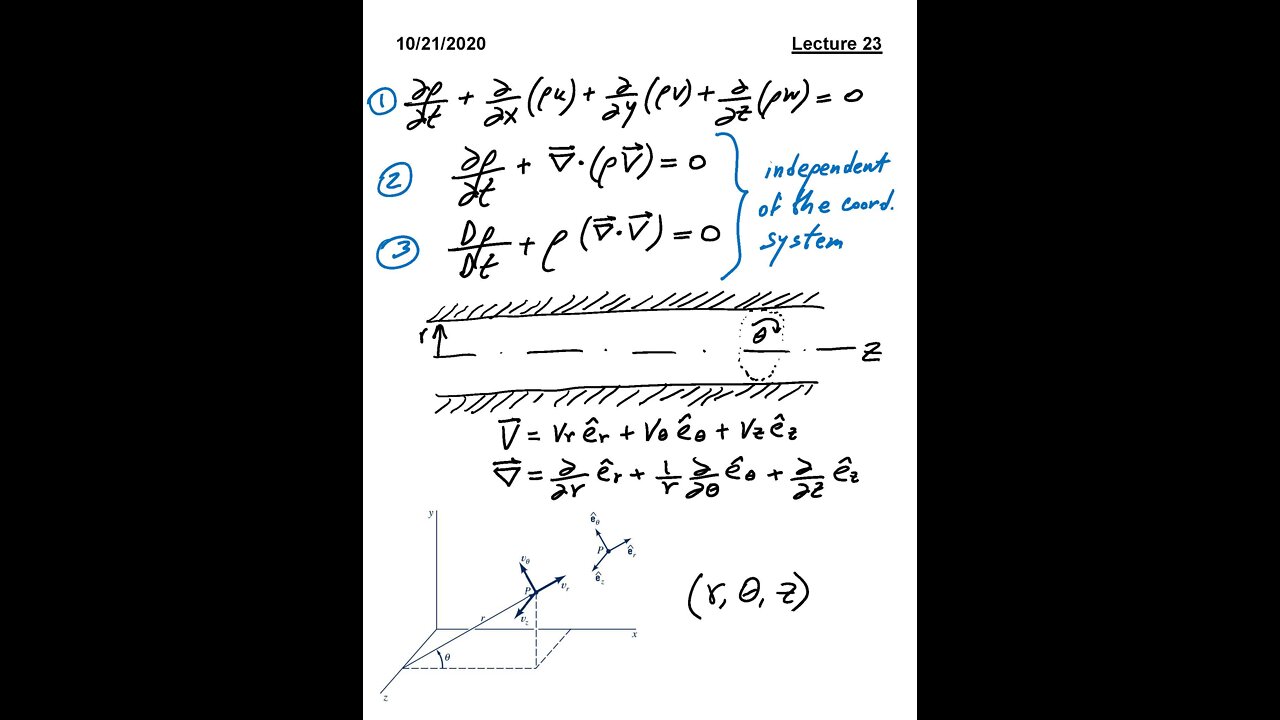 10/21/2020 Lecture 23
① ∂ρ/∂t + ∂/∂x (ρu) + ∂/∂y (ρv) + ∂/∂z (ρw) = 0
② ∂ρ/∂t + ∇⃗·(ρV⃗) = 0
③ Dρ/Dt + ρ (∇⃗·V⃗) = 0
independent
of the coord.
system
r
θ
z
V⃗ = Vr êr + Vθ êθ + Vz êz
∇⃗ = ∂/∂r êr + 1/r ∂/∂θ êθ + ∂/∂z êz
y
êθ
P
êr
êz
vθ
P
vr
vz
r
x
θ
z
(r, θ, z)